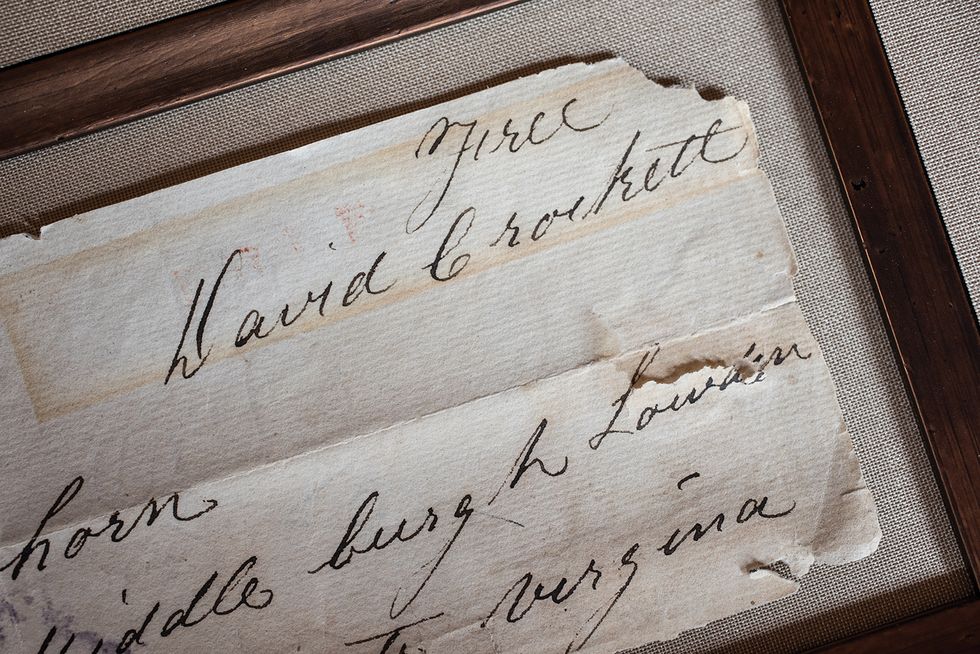 Free
David Crockett
horn
Middle burgh Lowden
virgina